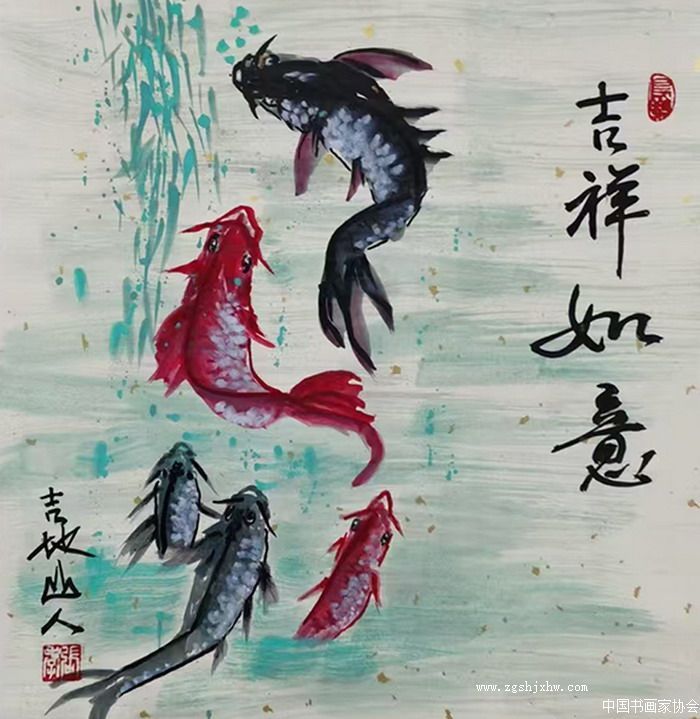 吉祥如意
吉地山人
www.zgshjxhw.com
中国书画家协会